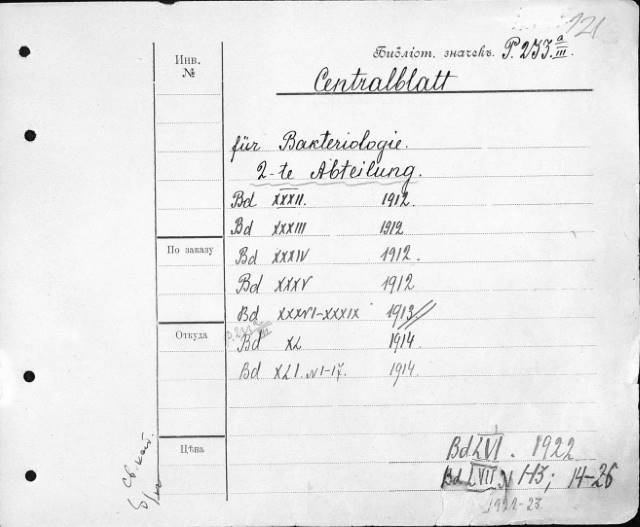 121
Инв.
№
Библіот. значекъ. P. 253. a/III
Centralblatt
für Bakteriologie.
2-te Abteilung.
Bd XXXII. 1912.
Bd XXXIII 1912
По заказу
Bd XXXIV 1912.
Bd XXXV 1912
Bd XXXVI-XXXIX 1913//
Откуда
Bd XL 1914
Bd XLI. N 1-17. 1914.
Цѣна
Bd LVI. 1922
Bd LVII N 1-13; 14-26
1922-23
Св. кат.